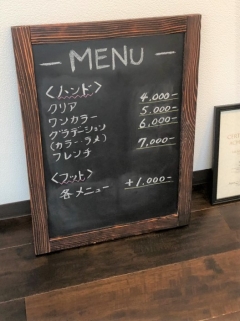 — MENU —
<ハンド>
クリア 4,000-
ワンカラー 5,000-
グラデーション 6,000-
(カラー・ラメ)
フレンチ 7,000-
<フット>
各メニュー +1,000-